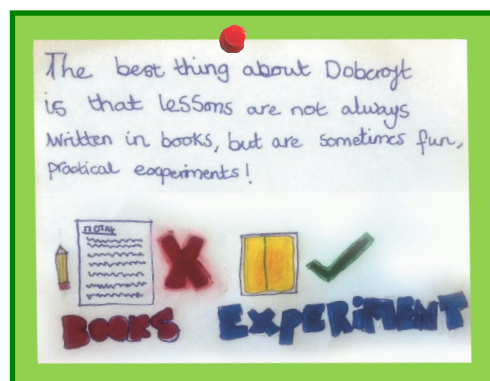 The best thing about Dobcroft
is that lessons are not always
written in books, but are sometimes fun,
practical experiments!
BOOKS EXPERIMENT